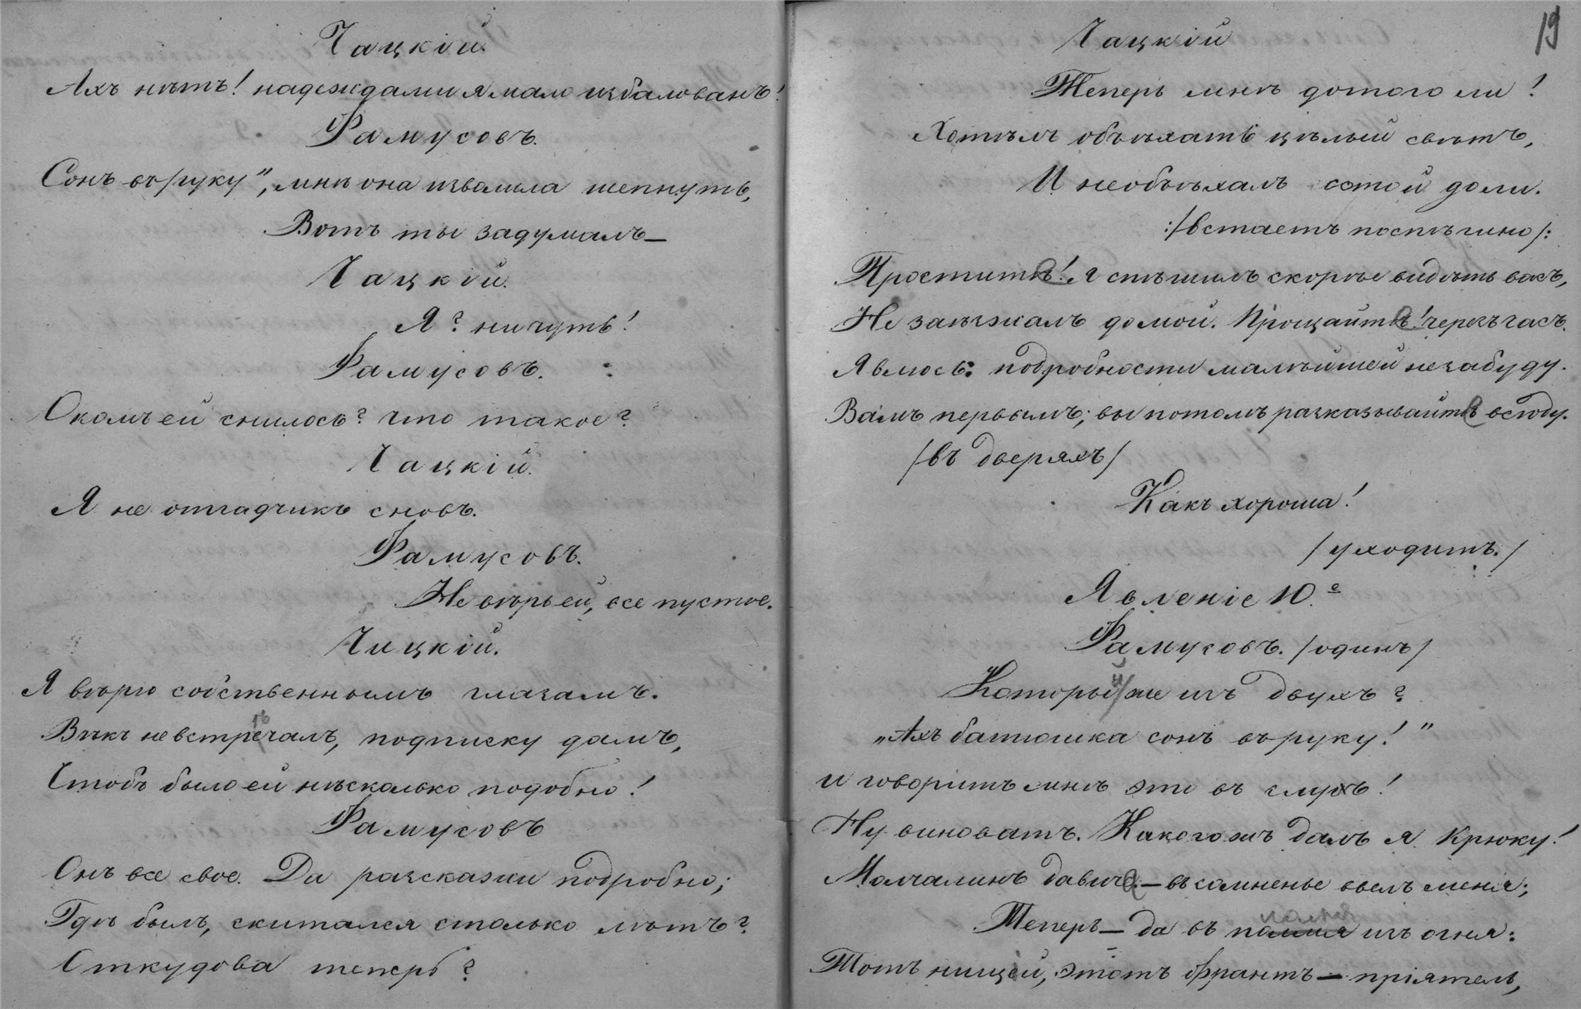 Чацкій.
Ахъ нѣтъ! надеждами я мало избалованъ!
Фамусовъ.
Сонъ въ руку", мнѣ она изволила шепнуть,
Вотъ ты задумалъ—
Чацкій.
Я? ничуть!
Фамусовъ. :
О комъ ей снилось? что такое?
Чацкій.
Я не отгадчикъ сновъ.
Фамусовъ.
Не вѣрь ей, все пустое.
Чацкій.
Я вѣрю собственнымъ глазамъ.
Вѣкъ не встрѣчалъ, подписку дамъ,
Чтобъ было ей нѣсколько подобно!
Фамусовъ
Онъ все свое. Да разскажи подробно;
Гдѣ былъ, скитался столько лѣтъ?
Откудова теперь?
19
Чацкій
Теперь мнѣ дотого ли!
Хотѣлъ объѣхать цѣлый свѣтъ,
И необъѣхалъ сотой доли.
:/встаетъ поспѣшно/:
Простите! я спѣшилъ скорѣе видѣть васъ,
Не заѣзжалъ домой. Прощайте! черезъ часъ.
Явлюсь: подробности малѣйшей незабуду.
Вамъ первымъ; вы потомъ разказывайте всюду.
/въ дверяхъ/
Какъ хороша!
/уходитъ./
Явленіе 10.е
Фамусовъ. /одинъ/
Который же изъ двухъ?
„Ахъ батюшка сонъ въ руку!"
и говоритъ мнѣ это въ слухъ!
Ну виноватъ. Какого жъ далъ я крюку!
Молчалинъ давиче — въ сомненье ввелъ меня;
Теперь — да въ полмя изъ огня:
Тотъ нищей, этотъ франтъ — пріятель,